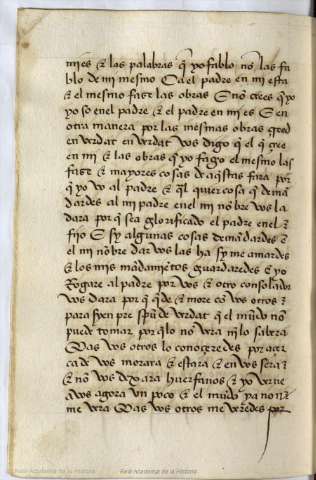 mi es & las palabras q̃ yo fablo nõ las fa
blo de mi mesmo Ca el padre en mi esta
& el mesmo faze las obras E nõ crees q̃ yo
yo so en el padre & el padre en mi es E en
otra manera por las mesmas obras creed
en verdat en verdat vos digo q̃ el q̃ cree
en mi & las obras q̃ yo fago el mesmo las
faze & mayores cosas de aq̃stas fara por
q̃ yo vo al padre & q̃l quier cosa q̃ demã
dardes al mi padre en el mi nõbre vos la
dara por q̃ sea glorificado el padre en el
fijo E sy algunas cosas demãdardes ẽ
el mi nõbre dar vos las ha sy me amardes
& los mis mãdamiẽtos guardaredes & yo
Rogare al padre por vos & otro consolador
vos dara por q̃ q̃de & more cõ vos otros
para syenpre spũ de verdat q̃ el mũdo nõ
puede tomar por q̃ lo nõ vera nĩ lo sabra
Mas vos otros lo conoçeredes por acer
ca de vos morara & estara & en vos sera
& nõ vos dexara huerfanos & yo verne
a vos agora vn poco & el mũdo ya nõ
me vera Mas vos otros me veredes por
Real Academia de la Historia
Real Academia de la Historia